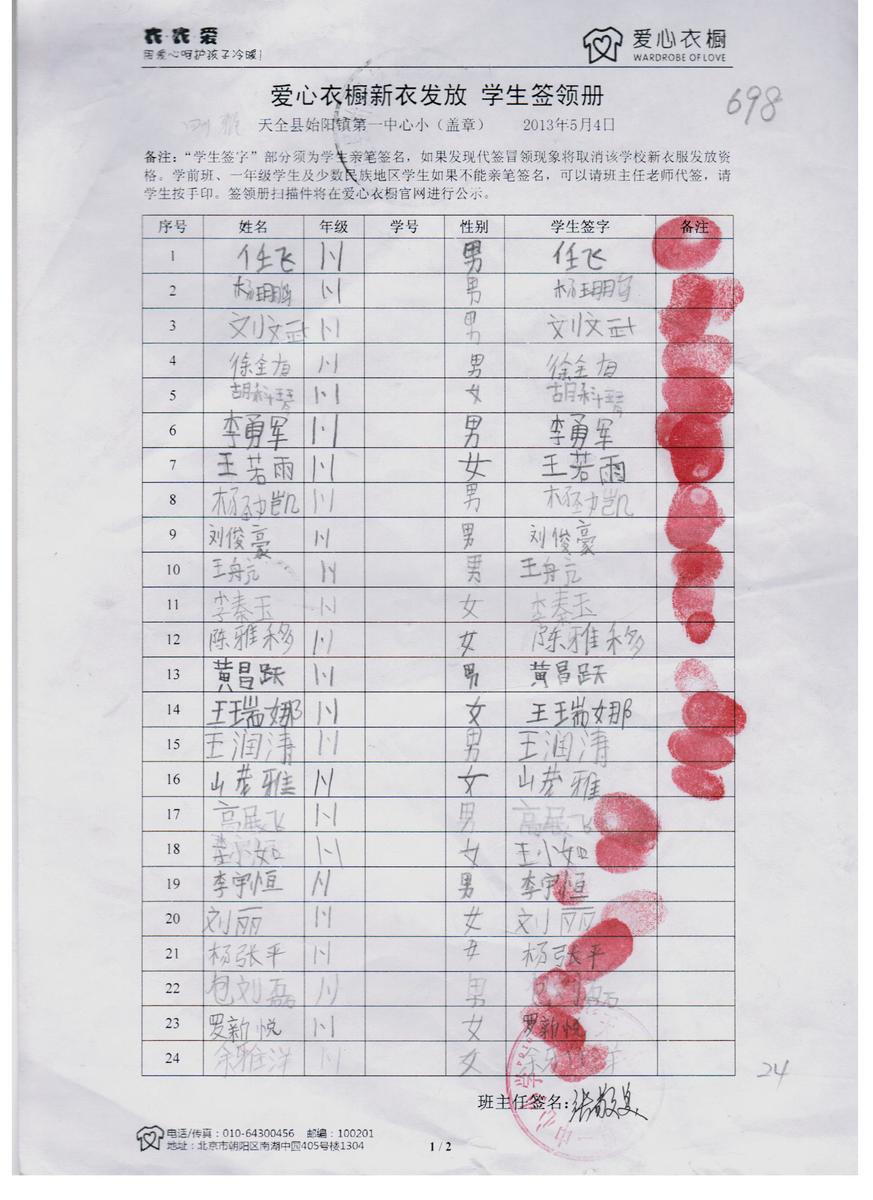 衣+衣=爱
用爱心呵护孩子冷暖!
爱心衣橱
WARDROBE OF LOVE
698
爱心衣橱新衣发放 学生签领册
天全县始阳镇第一中心小（盖章） 2013年5月4日
备注：“学生签字”部分须为学生亲笔签名，如果发现代签冒领现象将取消该学校新衣服发放资
格。学前班、一年级学生及少数民族地区学生如果不能亲笔签名，可以请班主任老师代签，请
学生按手印。签领册扫描件将在爱心衣橱官网进行公示。
序号 姓名 年级 学号 性别 学生签字 备注
1 任飞 1.1 男 任飞
2 1.1 男
3 刘文武 1.1 男 刘文武
4 徐全有 1.1 男 徐全有
5 胡科琴 1.1 女 胡科琴
6 李勇军 1.1 男 李勇军
7 王若雨 1.1 女 王若雨
8 1.1 男
9 刘俊豪 1.1 男 刘俊豪
10 王舟亢 1.1 男 王舟亢
11 李秦玉 1.1 女 李秦玉
12 陈雅移 1.1 女 陈雅移
13 黄昌跃 1.1 男 黄昌跃
14 王瑞娜 1.1 女 王瑞娜
15 王润涛 1.1 男 王润涛
16 1.1 女
17 高展飞 1.1 男 高展飞
18 1.1 女 王小如
19 李宇恒 1.1 男 李宇恒
20 刘丽 1.1 女 刘丽
21 杨张平 1.1 女 杨张平
22 包刘磊 1.1 男
23 罗新悦 1.1 女 罗新悦
24 余雅洋 1.1 女 余雅洋
24
班主任签名:张敬美
电话/传真：010-64300456 邮编：100201
地址：北京市朝阳区南湖中园405号楼1304
1 / 2